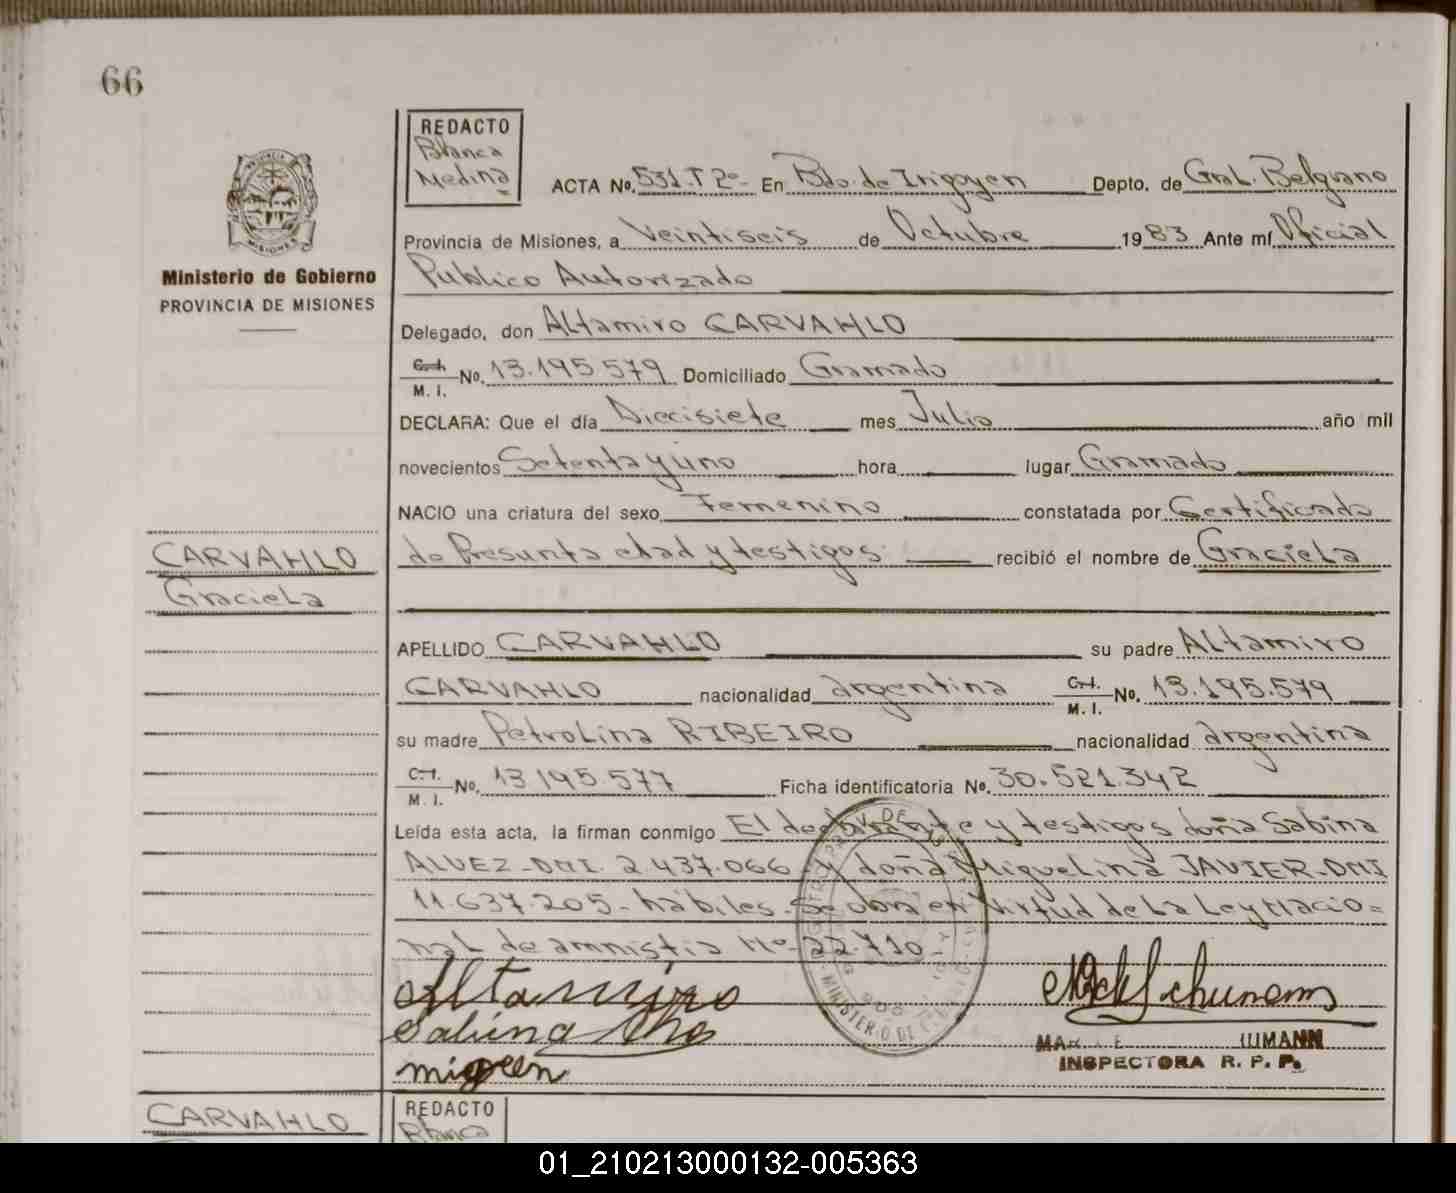 66
REDACTO
Blanca
Medina
ACTA No. 531.T 2º- En Bdo. de Irigoyen Depto. de Gral. Belgrano
Provincia de Misiones, a Veintiseis de Octubre 1983 Ante mí Oficial
Publico Autorizado
Ministerio de Gobierno
PROVINCIA DE MISIONES
Delegado, don Altamiro CARVAHLO
C. I. M. I. No. 13.195.579 Domiciliado Gramado
DECLARA: Que el día Diecisiete mes Julio año mil
novecientos Setenta y uno hora lugar Gramado
NACIO una criatura del sexo Femenino constatada por Certificado
de Presunta edad y testigos. recibió el nombre de Graciela
CARVAHLO
Graciela
APELLIDO CARVAHLO su padre Altamiro
CARVAHLO nacionalidad argentina C. I. M. I. No. 13.195.579
su madre Petrolina RIBEIRO nacionalidad argentina
C. I. M. I. No. 13 195 577 Ficha identificatoria No. 30.521.342
Leída esta acta, la firman conmigo El declarante y testigos doña Sabina
ALVEZ-DNI. 2 437.066 y doña Miguelina JAVIER-DNI
11.637.205- habiles- Se obra en Virtud de La Ley Nacio=
nal de amnistia Nº-22.710
Altamiro
Sabina
INSPECTORA R. P. P.
CARVAHLO
REDACTO
Blanca
01_210213000132-005363